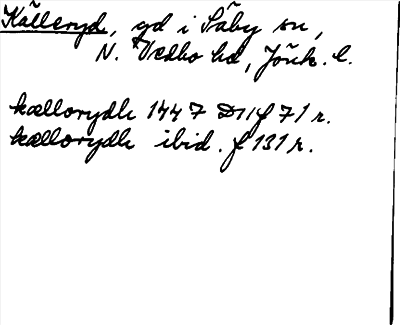 Källeryd, gd i Säby sn,
N. Vedbo hd, Jönk. l.
kællorydh 1447 D11 f 71 r.
kællorydh ibid. f 131 r.